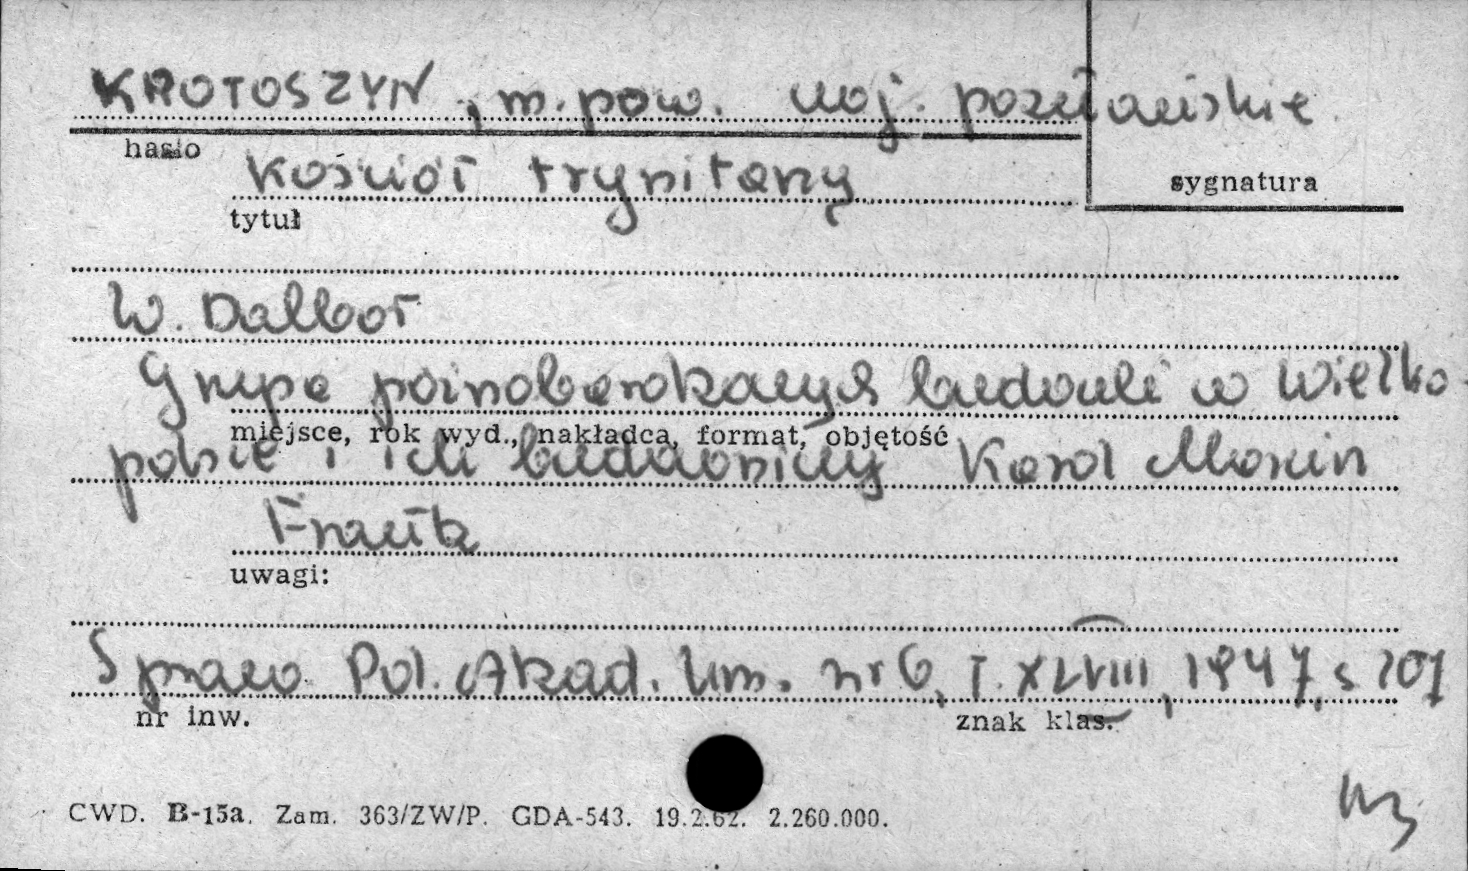 KROTOSZYN, m. pow. woj. poznańskie
hasło
Kościół trynitarzy
sygnatura
tytuł
W. Dalbor
Grupa póznobarokowych budowli w Wielko-
miejsce, rok wyd., nakładca, format, objętość
polsce i ich budowniczy Karol Marcin
Frantz
uwagi:
Spraw. Pol. Akad. Um. nr 6, T. XLVIII, 1947, s 207
nr inw.
znak klas.
CWD. B-15a. Zam. 363/ZW/P. GDA-543. 19.2.62. 2.260.000.